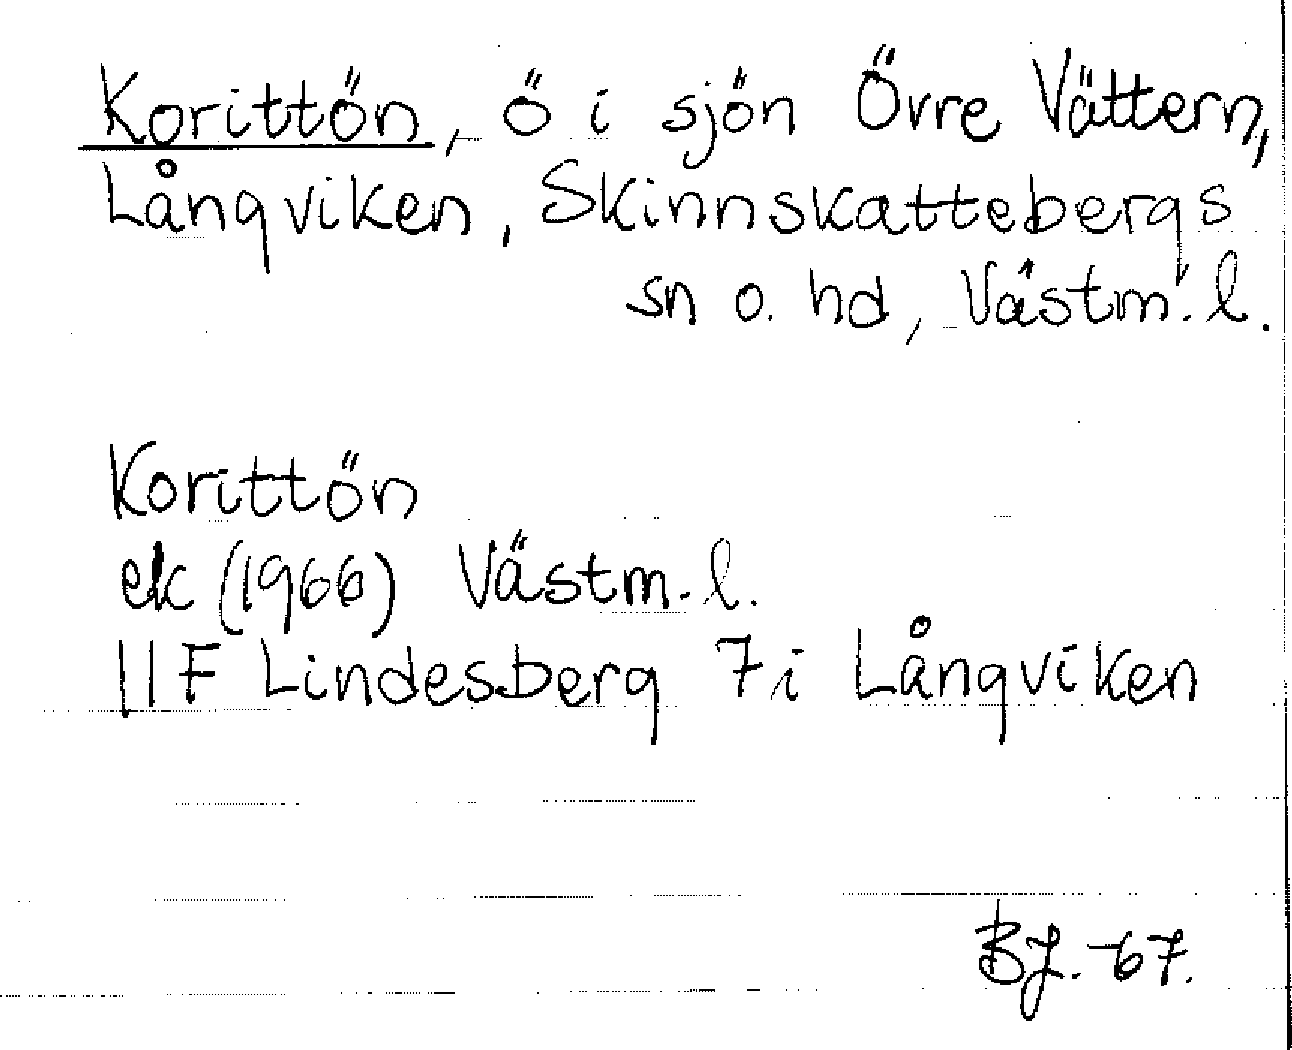 Korittön, ö i sjön Övre Vättern,
Långviken, Skinnskattebergs
sn o. hd, Västm. l.
Korittön
ek (1966) Västm. l.
11F Lindesberg 7i Långviken
BJ. -67.